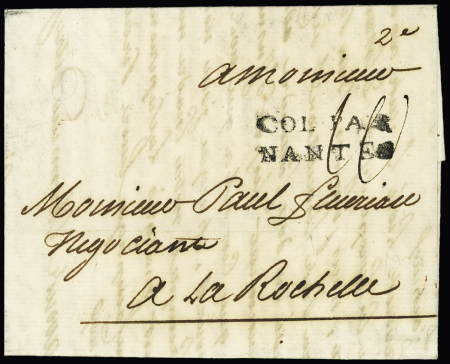 2e
a monsieur
COL PAR
NANTES
10
Monsieur Paul
Negociant
A La Rochelle